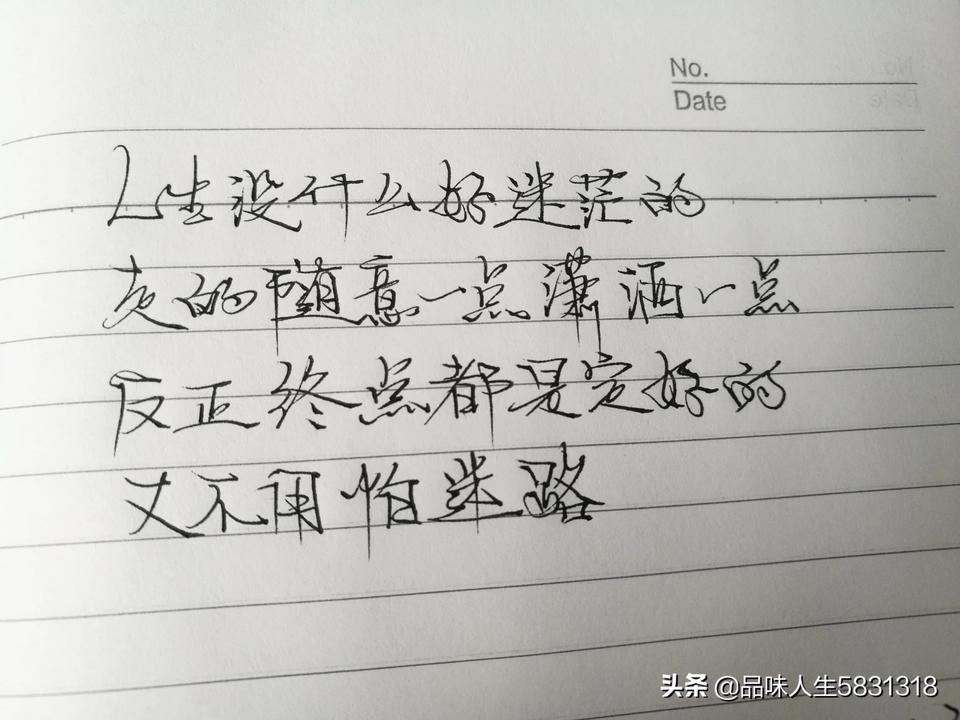 No.
Date
人生没什么好迷茫的
走的随意一点潇洒一点
反正终点都是定好的
又不用怕迷路
头条 @品味人生5831318